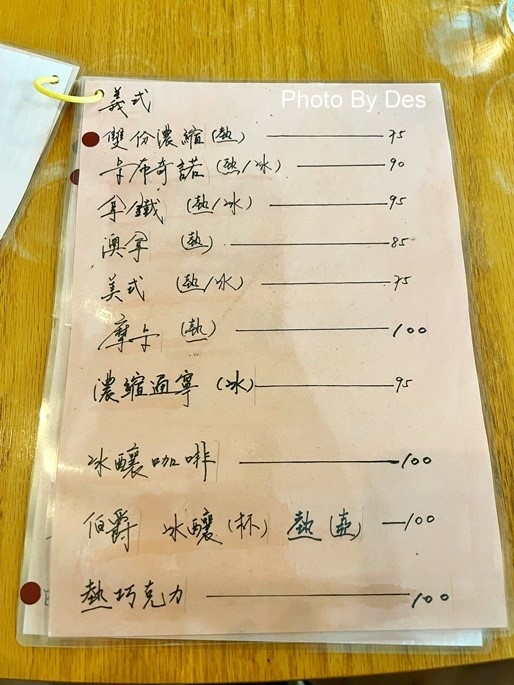 Photo By Des
義式
雙份濃縮(熱) 75
卡布奇諾(熱/冰) 90
拿鐵 (熱/冰) 95
澳拿 (熱) 85
美式 (熱/冰) 75
摩卡 (熱) 100
濃縮通寧 (冰) 95
冰釀咖啡 100
伯爵 冰釀(杯) 熱(壺) 100
熱巧克力 100